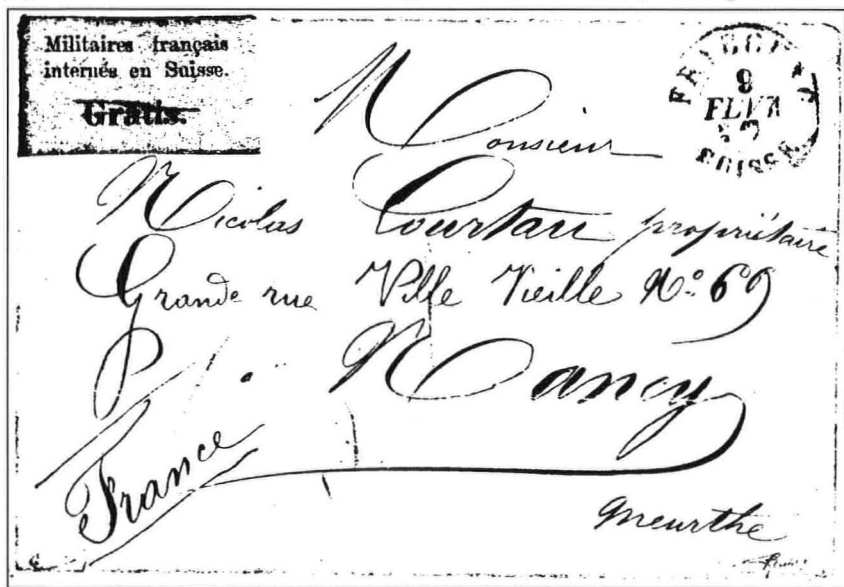 Militaires français
internés en Suisse.
Gratis.
9
SUISSE
Monsieur
Nicolas Courtau propriétaire
Grande rue Ville Vieille No. 69
à Nancy
France
Meurthe